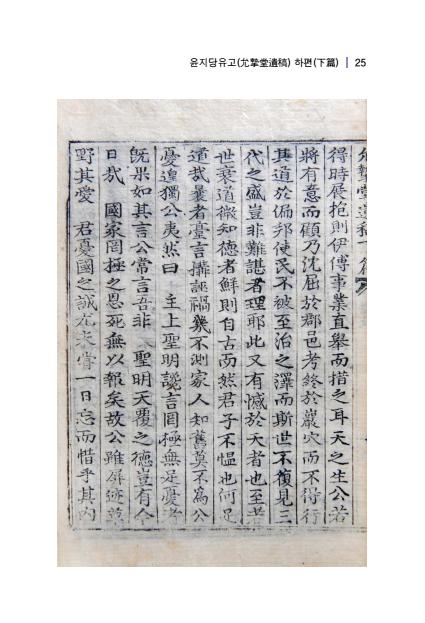 윤지당유고(允摯堂遺稿) 하편(下篇) | 25
允摯堂遺稿下篇
得時展抱則伊傅事業直擧而措之耳天之生公若
將有意而顧乃沈屈於郡邑考終於巖穴而不得行
其道於偏邦使民不被至治之澤而斯世不復見三
代之盛豈非難諶者理耶此又有憾於天者也至若
世衰道微知德者鮮則自古而然君子不慍也何足
道哉曩者憂言搆誣禍幾不測家人知舊莫不爲公
憂遑獨公夷然曰 主上聖明讒言罔極無足憂者
旣果如其言公常言吾非 聖明天覆之德豈有今
日哉 國家罔極之恩死無以報矣故公雖屛迹
野其愛 君憂國之誠尤未嘗一日忘而惜乎其內